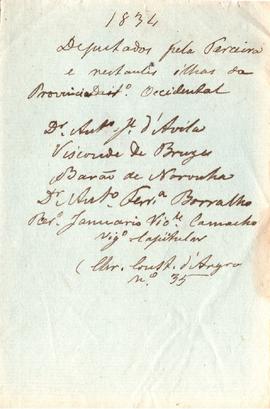 1834
Deputados pela Terceira
e restantes ilhas da
Provincia Occidental
Dr. Antº. Jº. d'Avila
Visconde de Bruges
Barão de Noronha
Dr. Antº. Ferrª. Borralho
Januario Vicᵗᵉ. Camacho
Vigº. Capitular
(Chr. Const. d'Angra
nº. 35